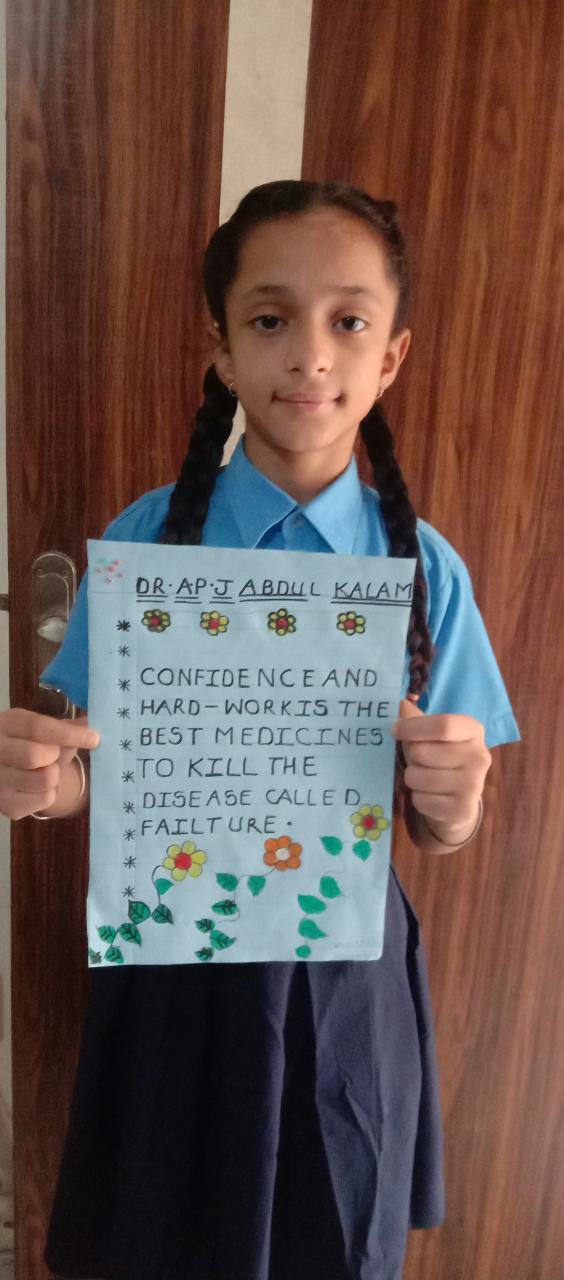 DR. A.P.J ABDUL KALAM
CONFIDENCE AND
HARD-WORK IS THE
BEST MEDICINES
TO KILL THE
DISEASE CALLED
FAILTURE.